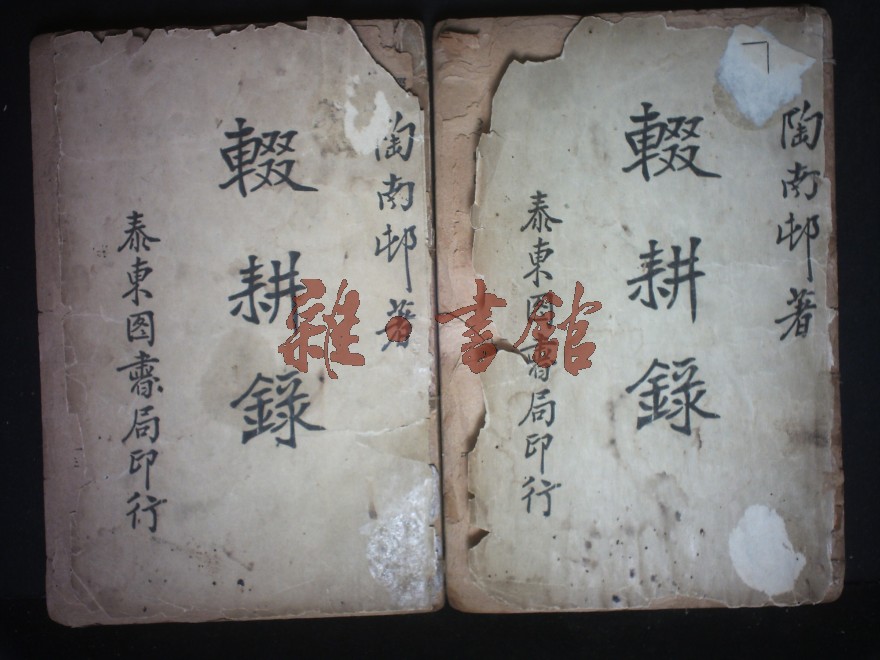 陶南邨著
輟耕錄
泰東图書局印行
陶南邨著
輟耕錄
泰東图書局印行
雜·書館